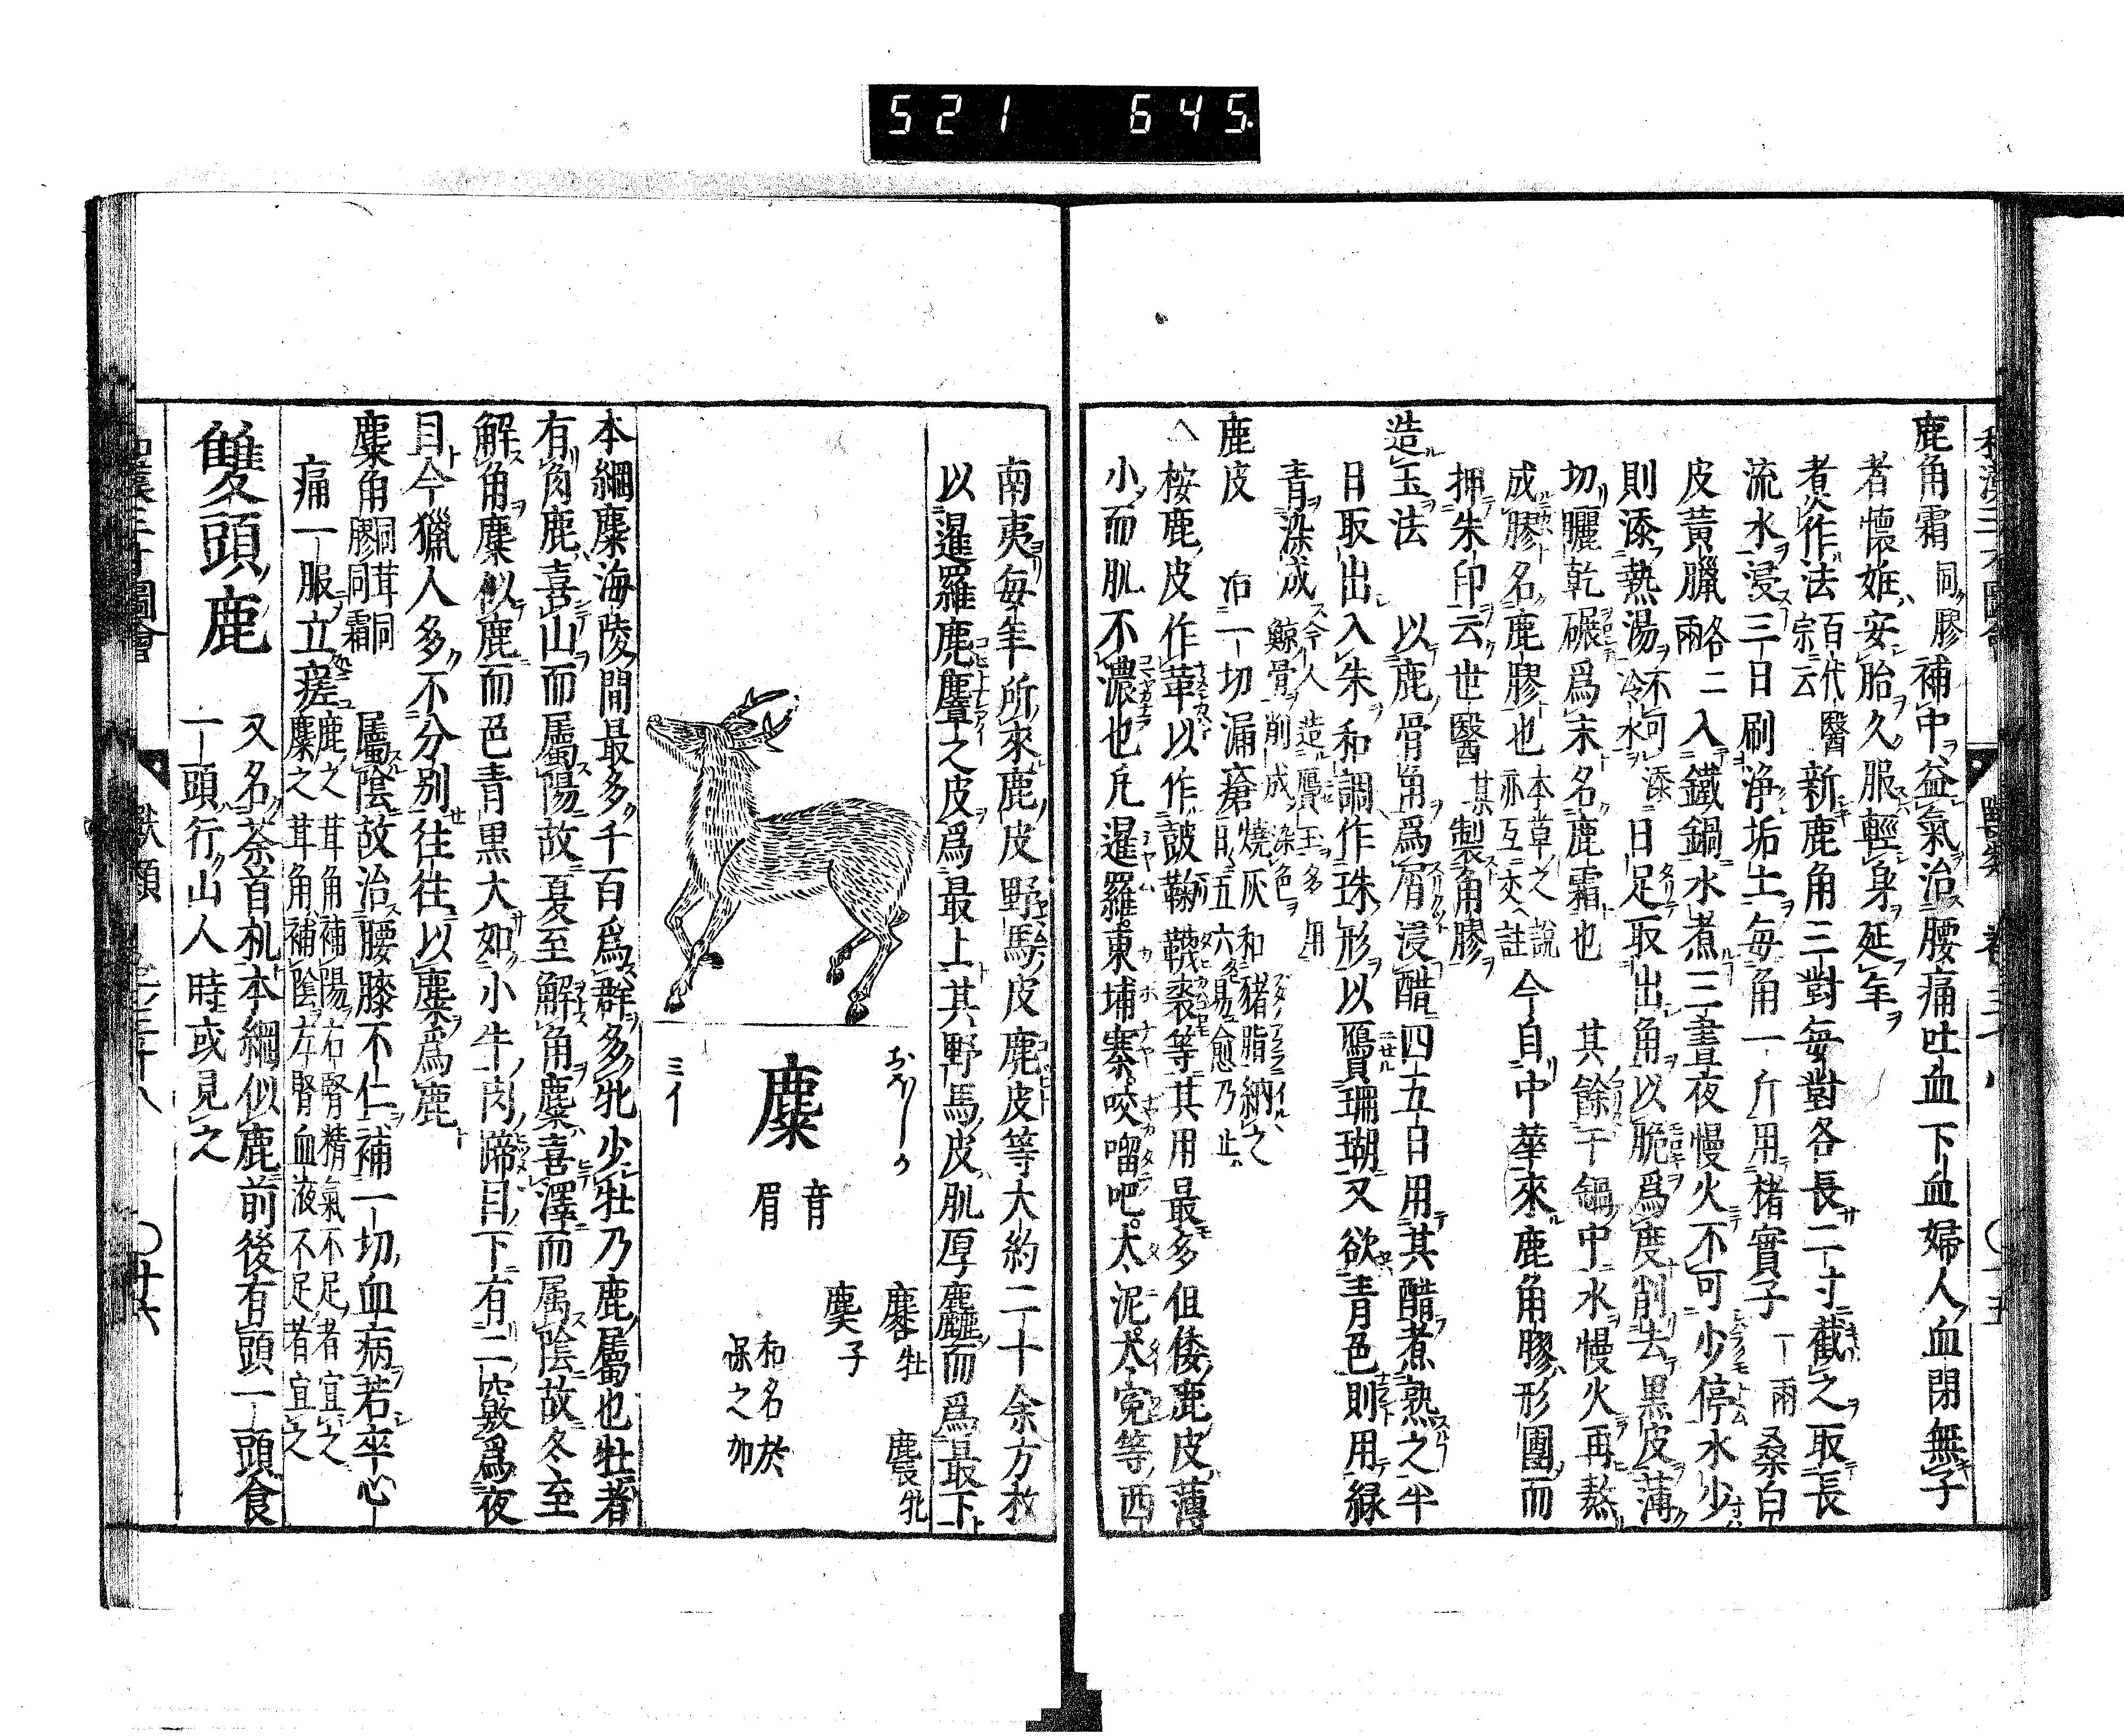 521 645.
鹿角霜 同膠 補中益氣治腰痛吐血下血婦人血閉無子
者懷妊安胎久服輕身延年
煮作法 百代醫宗云 新鹿角三對每對各長二寸截之取長
流水浸三日刷浄垢土每角一斤用楮實子一兩桑白
皮黃臘各二兩入鐵鍋水煮三晝夜慢火不可少停水少
則添熱湯不可添冷水日足取出角以脆爲度削去黒皮薄
切曬乾碾爲末名鹿霜也 其餘于鍋中水慢火再熬
成膠名鹿膠也 本草之說亦互夾註 今自中華來鹿角膠形團而
押朱印云世醫某製角膠
造玉法 以鹿骨角爲屑浸醋四五日用其醋煮熟之半
日取出入朱和調作珠形以贋珊瑚又欲青色則用緑
青染成 今人造贋玉多用鯨骨削成染色
鹿皮 治一切漏瘡燒灰和猪脂納之日五六易愈乃止
△桉鹿皮作革以作鼓鞠韈裘等其用最多但倭鹿皮薄
小而肌不濃也凡暹羅東埔寨咬𠺕吧太泥太寃等西
南夷每年所來鹿皮野馬皮鹿皮等大約二十余万枚
以暹羅鹿麞之皮爲最上其野馬皮肌厚麤而爲最下
麋 音眉
おほしか
三イ
麔牡 麎牝
麌子
和名於保之加
本綱麋海陵間最多千百爲群多牝少牡乃鹿屬也牡者
有角鹿喜山而屬陽故夏至解角麋喜澤而属陰故冬至
解角麋似鹿而色青黒大如小牛肉蹄目下有二竅爲夜
目今獵人多不分别往往以麋爲鹿
麋角 同茸同膠同霜 屬陰故治腰膝不仁補一切血病若卒心
痛一服立瘥 鹿之茸角補陽右腎精氣不足者宜之麋之茸角補陰左腎血液不足者宜之
雙頭鹿 又名荼首机本綱似鹿前後有頭一頭食
一頭行山人時或見之
獸類